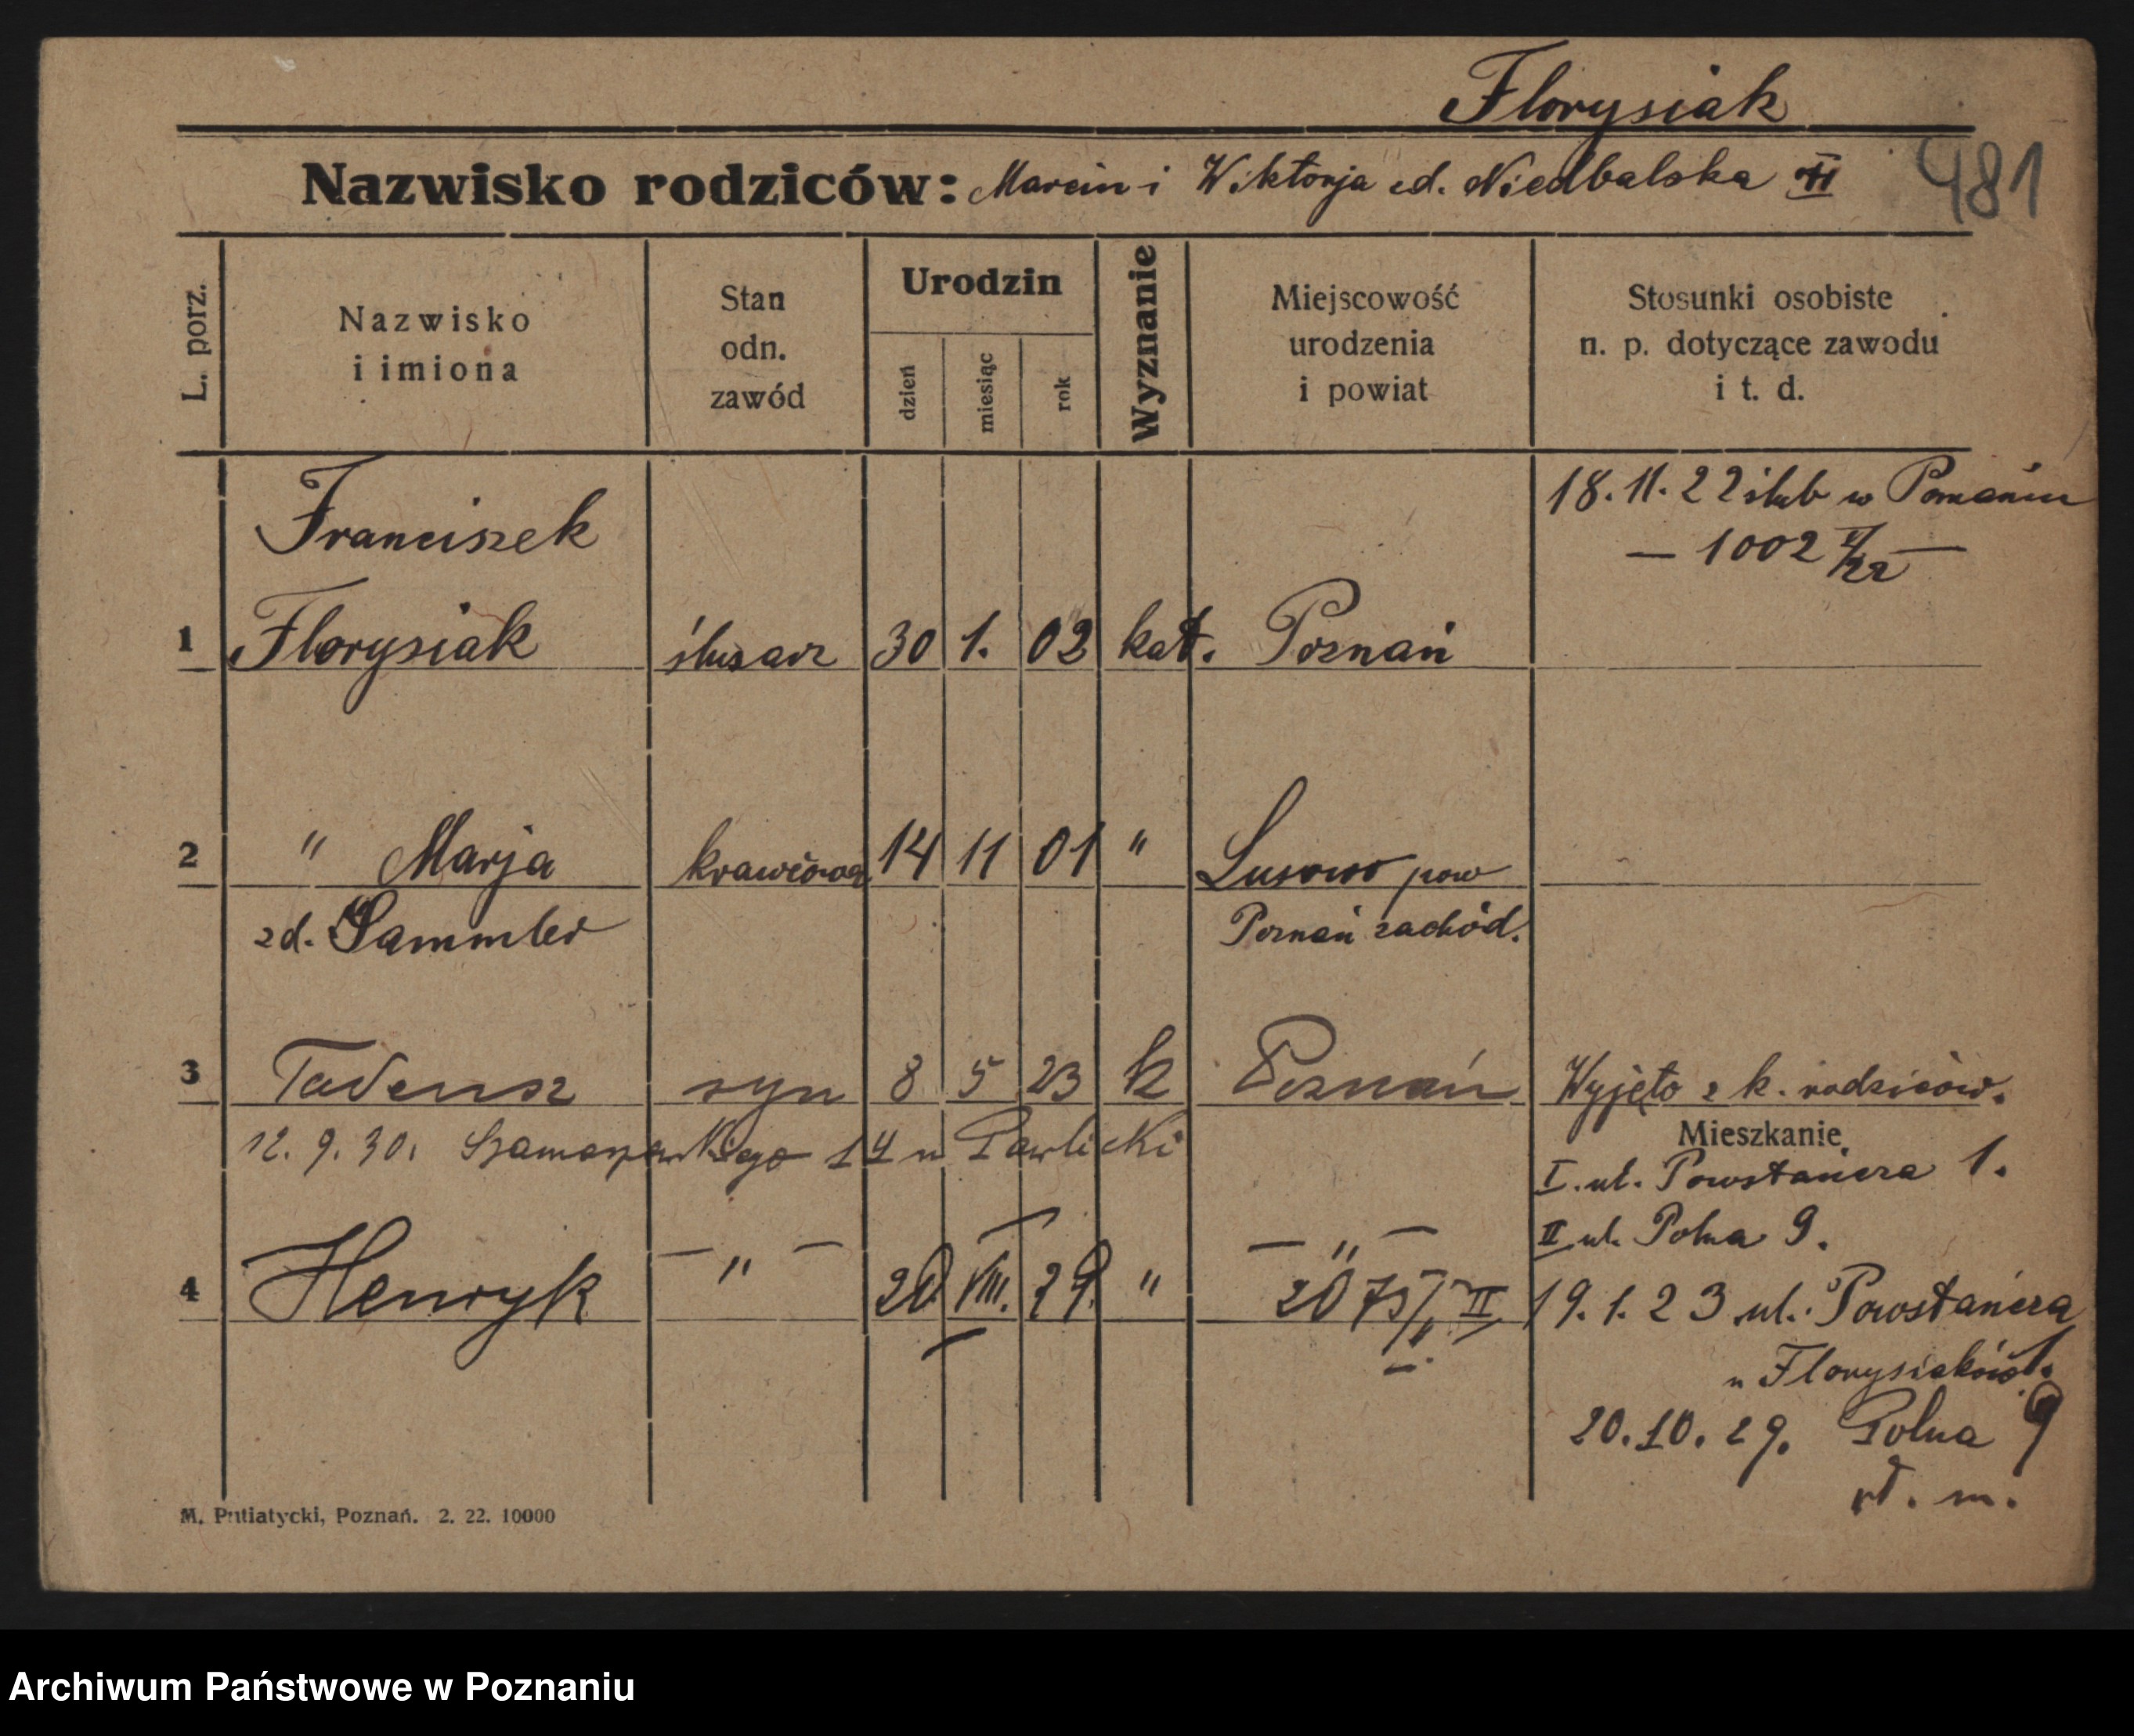 Florysiak
Nazwisko rodziców: Marcin i Wiktorja zd. Niedbalska
481
L. porz.
Nazwisko
i imiona
Stan
odn.
zawód
Urodzin
dzień
miesiąc
rok
Wyznanie
Miejscowość
urodzenia
i powiat
Stosunki osobiste
n. p. dotyczące zawodu
i t. d.
18.11.22 ślub w Poznaniu
— 1002 —
Franciszek
1 Florysiak ślusarz 30 1. 02 kat. Poznań
2 " Marja krawcowa 14 11 01 " Lusowo pow
zd. Sammler Poznań zachód.
3 Tadeusz syn 8 5 23 k Poznań Wyjęto z k. rodziców.
12. 9. 30. 14 u Pawlicki
Mieszkanie
I. ul. Powstańcza 1.
II ul. Polna 9.
4 Henryk — " — 20 VIII. 29. " — " —
2075/ II
19.1.23 ul. Powstańcza 1.
u Florysiaków
20.10.29. Polna 9
M. Putiatycki, Poznań. 2. 22. 10000
Archiwum Państwowe w Poznaniu